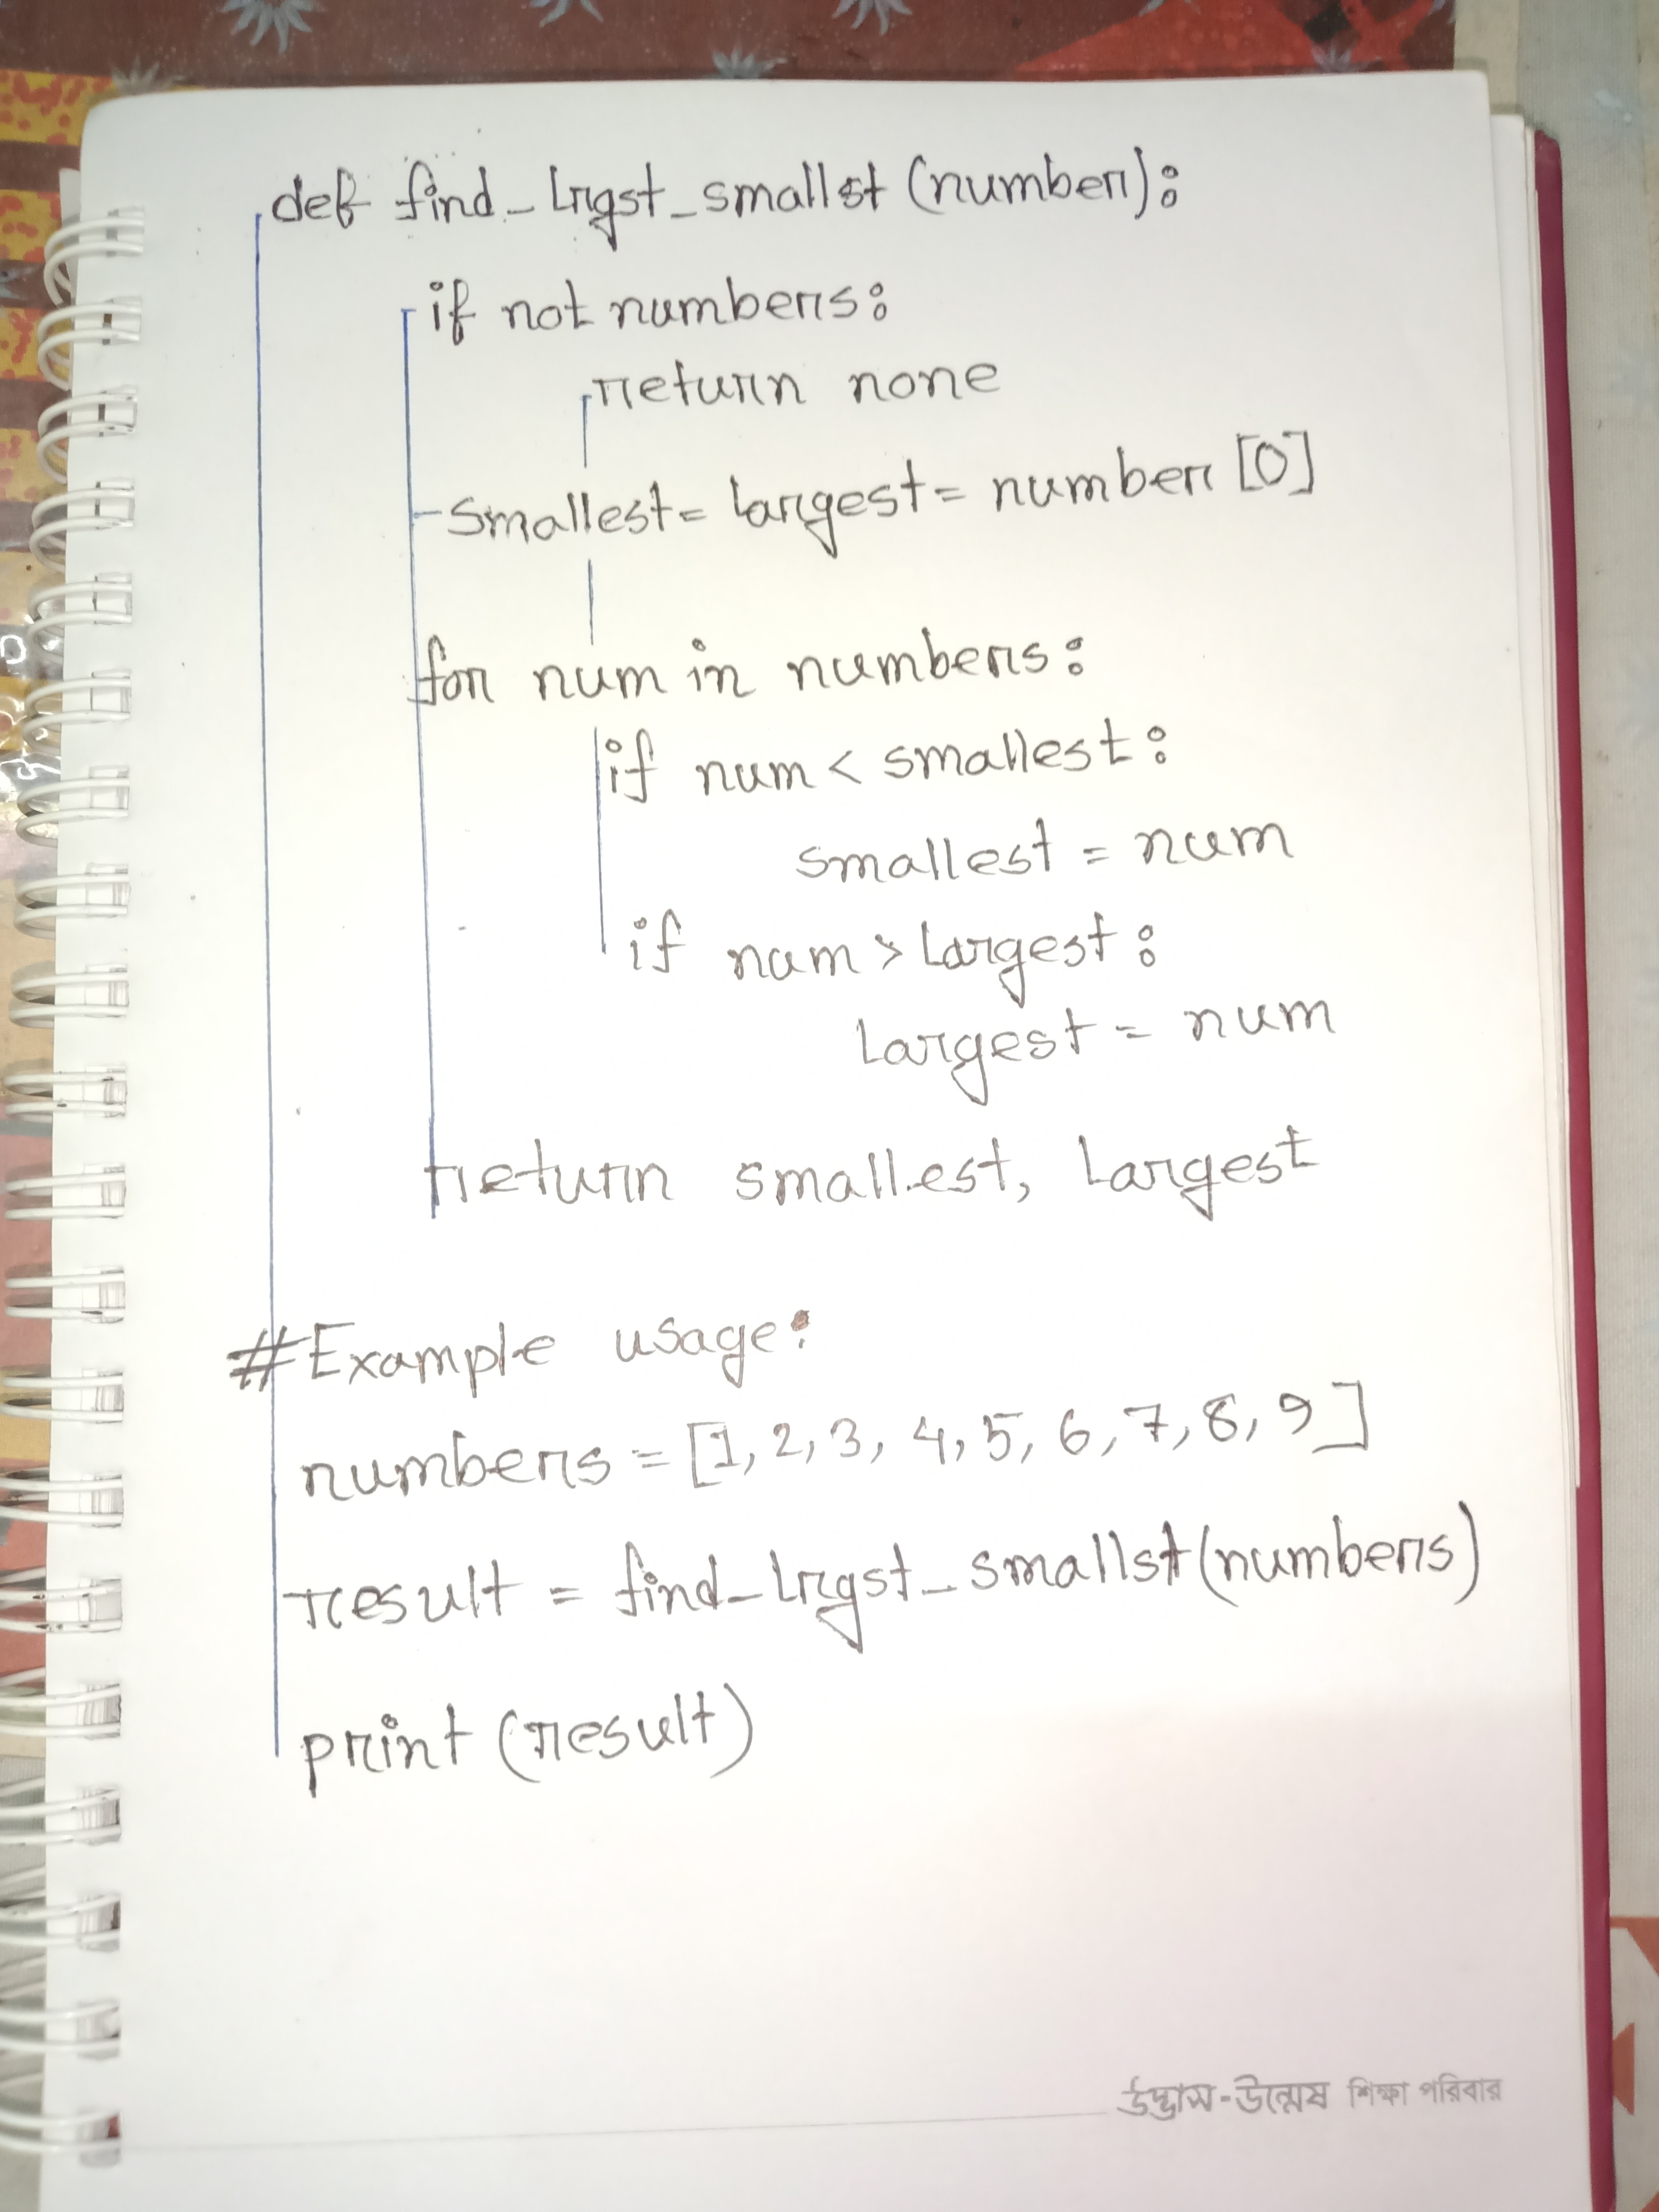 def find_lrgst_smallst (number):
if not numbers:
return none
smallest = largest = number [0]
for num in numbers:
if num < smallest:
smallest = num
if num > largest:
largest = num
return smallest, largest
#Example usage:
numbers = [1, 2, 3, 4, 5, 6, 7, 8, 9]
result = find_lrgst_smallst (numbers)
print (result)
উদ্ভাস-উন্মেষ শিক্ষা পরিবার